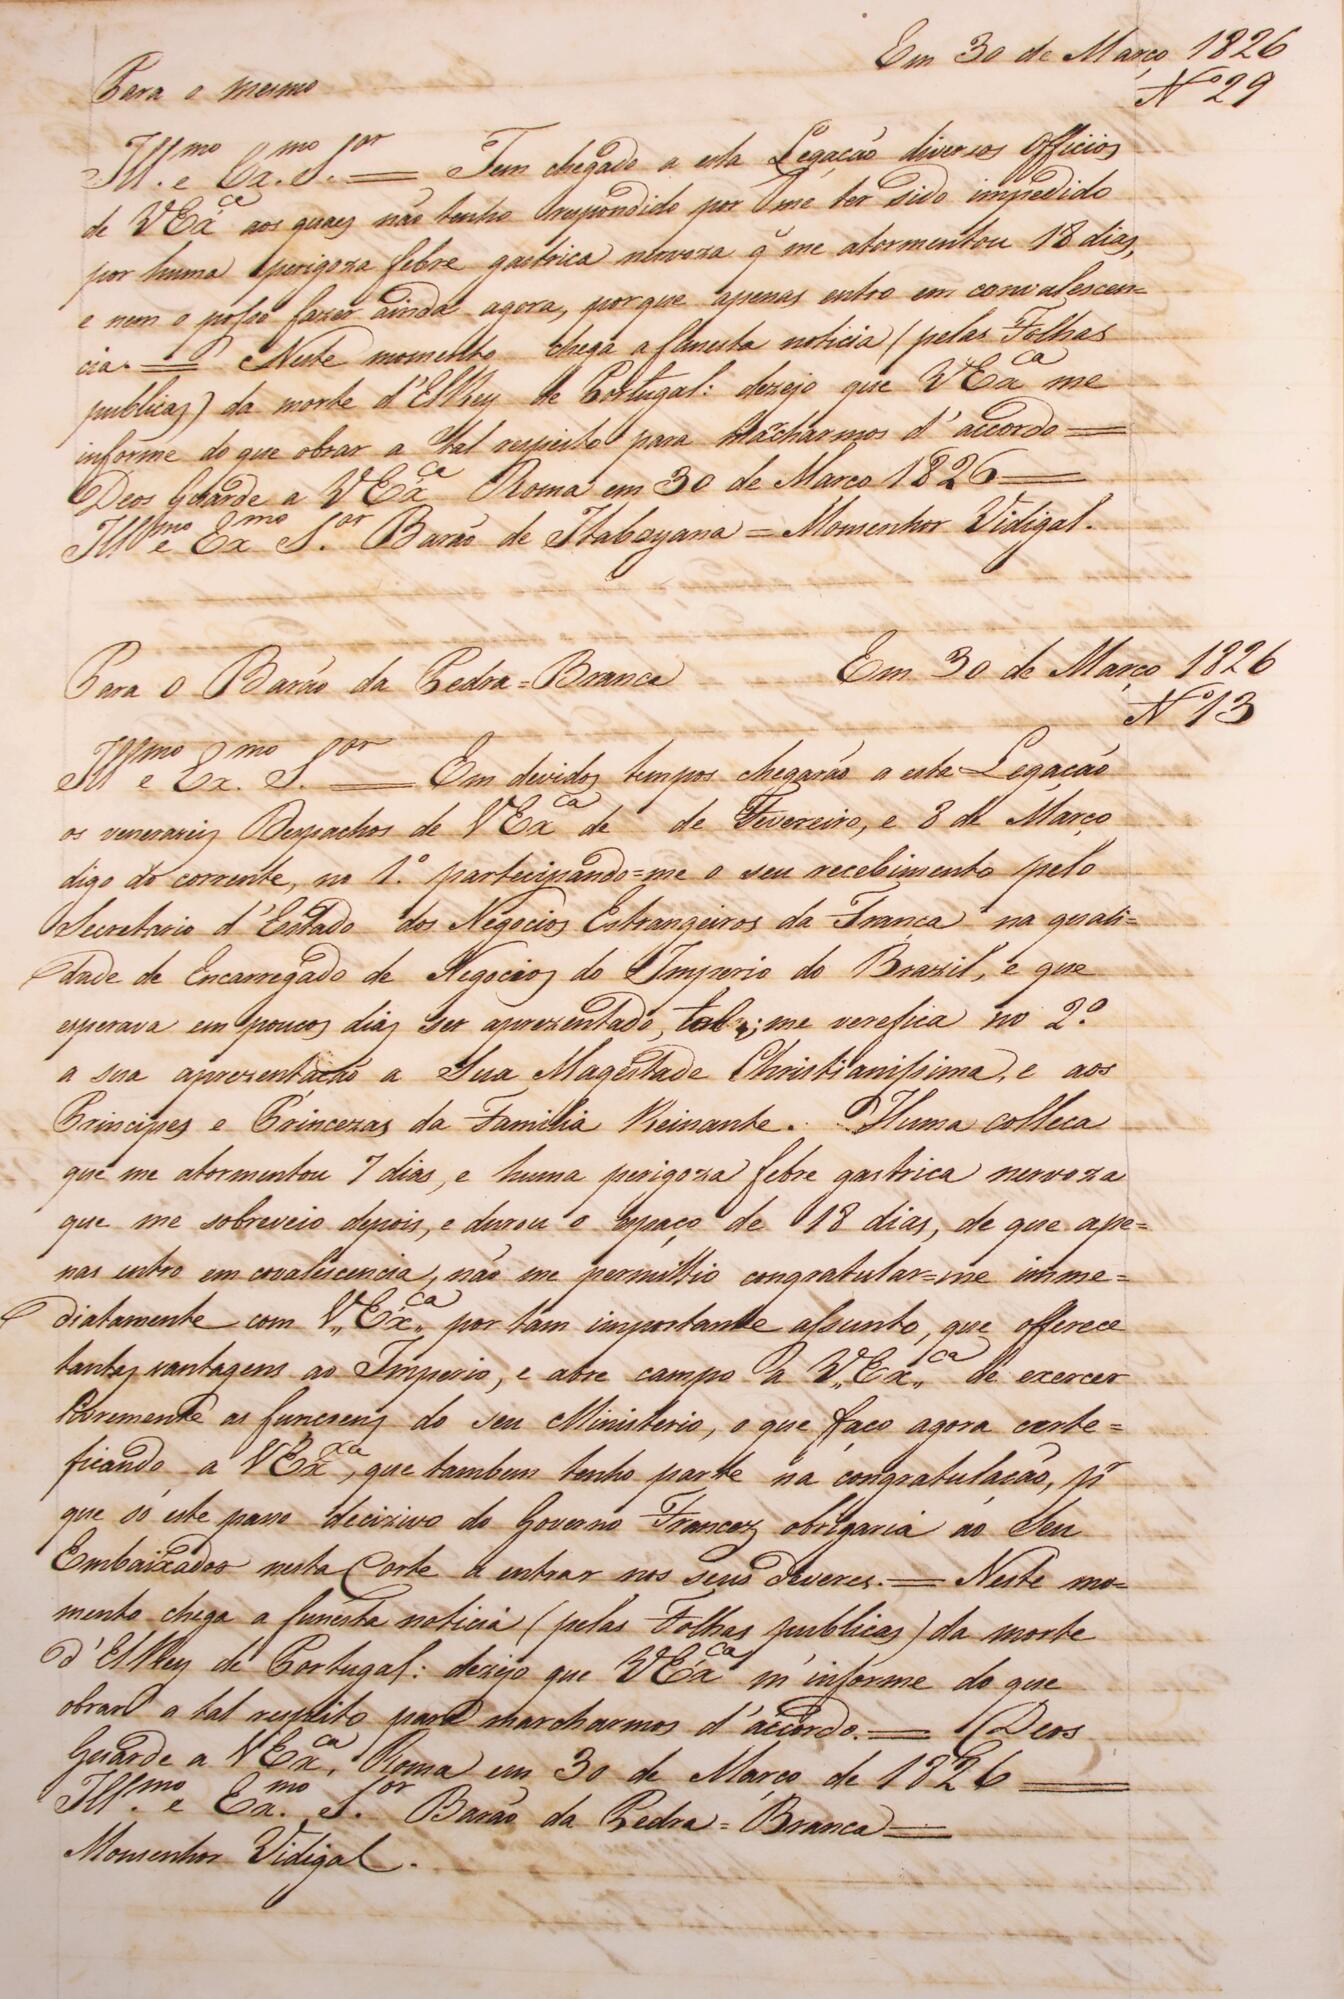 Em 30 de Março 1826
Para o mesmo
Nº 29
Ill.mo e Ex.mo S.or = Tem chegado a esta Legação diversos Officios
de VExca aos quaes não tenho respondido por me ter sido impedido
por huma perigoza febre gastrica nervoza q̃ me atormentou 18 dias,
e nem o posso fazer ainda agora, porque apenas entro em convalescen=
cia. = Neste momento chega a funesta noticia (pelas Folhas
publicas) da morte d'ElRey de Portugal: dezejo que VExca me
informe do que obrar a tal respeito para marcharmos d'accordo =
Deos Guarde a VExca Roma em 30 de Março 1826 =
Illmo e Exmo S.or Barão de Itabayana = Monsenhor Vidigal.
Para o Barão da Pedra=Branca Em 30 de Março 1826
Nº 13
Illmo e Ex.mo S.or = Em devidos tempos chegarão a esta Legação
os veneraveis Despachos de VExca de de Fevereiro, e 8 de Março
digo do corrente, no 1.º partecipando=me o seu recebimento pelo
Secretario d'Estado dos Negocios Estrangeiros da França na quali=
dade de Encarregado de Negocios do Imperio do Brazil, e que
esperava em poucos dias ser aprezentado, me verefica no 2.º
a sua aprezentação a Sua Magestade Christianissima, e aos
Principes e Princezas da Familia Reinante. Huma colleca
que me atormentou 7 dias, e huma perigoza febre gastrica nervoza
que me sobreveio depois, e durou o espaço de 18 dias, de que ape=
nas entro em covalescencia, não me permittio congratular=me imme=
diatamente com V,,Exca,, por tam importante assunto, que offerece
tantas vantagens ao Imperio, e abre campo a V,,Exca,, de exercer
livremente as funcsens do seu Ministerio, o que faço agora certe=
ficando a VExca, que tambem tenho parte na congratulação, pr
que só este passo decizivo do Governo Francez obrigaria ao Seu
Embaixador nesta Corte a entrar nos seus deveres. = Neste mo=
mento chega a funesta noticia (pelas Folhas publicas) da morte
d'ElRey de Portugal: dezejo que VExca m'informe do que
obrar a tal respeito para marcharmos d'accordo. = Deos
Guarde a VExca, Roma em 30 de Março de 1826 =
Ill.mo e Ex.mo S.or Barão da Pedra=Branca =
Monsenhor Vidigal.